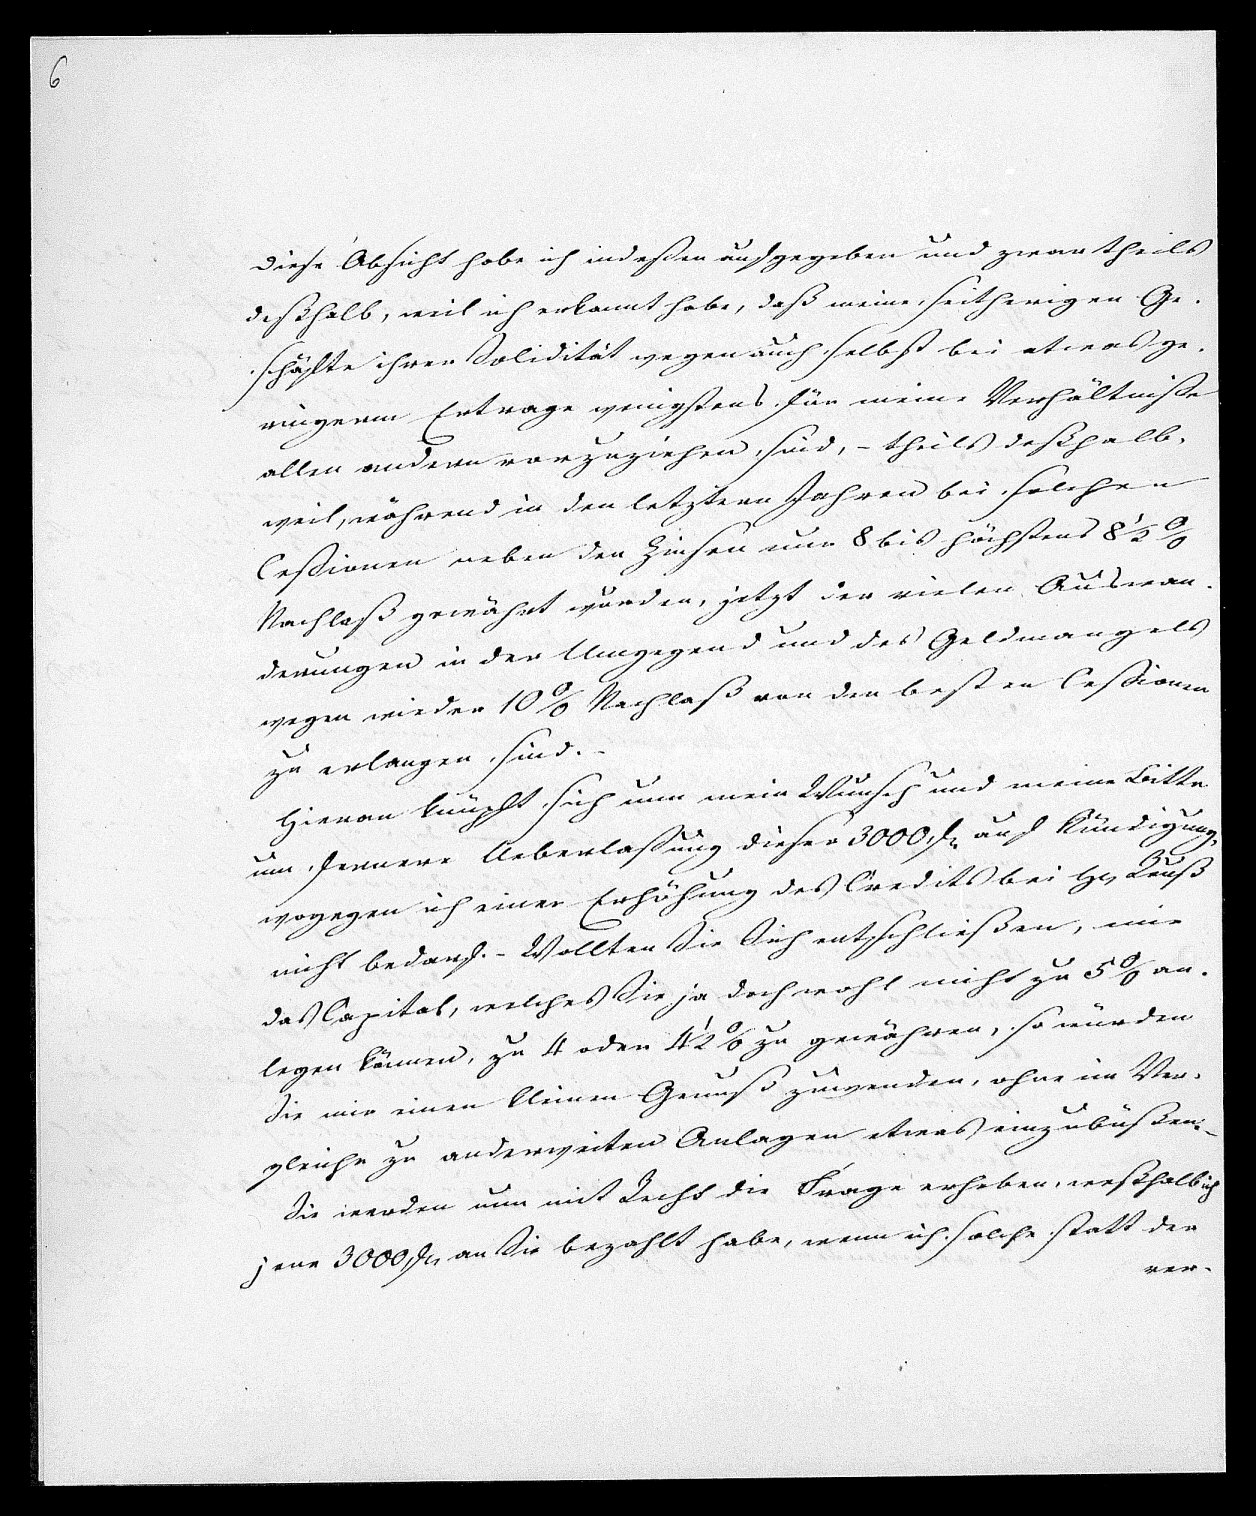 6
diese Absicht habe ich indeßen aufgegeben und zwar theils
deßhalb, weil ich erkannt habe, daß meine seitherigen Ge-
schäfte ihrer Solidität wegen auch selbst bei etwas ge-
ringerm Ertrage wenigstens für meine Verhältniße
allen andern vorzuziehen sind, - theils deßhalb,
weil, während in den letztern Jahren bei solchen
Cessionen neben den Zinsen nur 8 bis höchstens 8 1/2 %
Nachlaß gewährt wurden, jetzt der vielen Auswan-
derungen in der Umgegend und des Geldmangels
wegen wieder 10 % Nachlaß von den besten Cessionen
zu erlangen sind. -
Hieran knüpft sich nun mein Wunsch und meine Bitte
um fernere Ueberlassung dieser 3000 fl. auf Kündigung,
wogegen ich einer Erhöhung des Credits bei H. Reuß
nicht bedarf. - Wollten Sie Sich entschließen, mir
das Capital, welches Sie ja doch wohl nicht zu 5 % an-
legen können, zu 4 oder 4 1/2 % zu gewähren, so würden
Sie mir einen kleinen Genuß zuwenden, ohne im Ver-
gleiche zu anderweiten Anlagen etwas einzubüßen. -
Sie werden nun mit Recht die Frage erheben, weßhalb ich
jene 3000 fl. an Sie bezahlt habe, wenn ich solche statt der
ver-